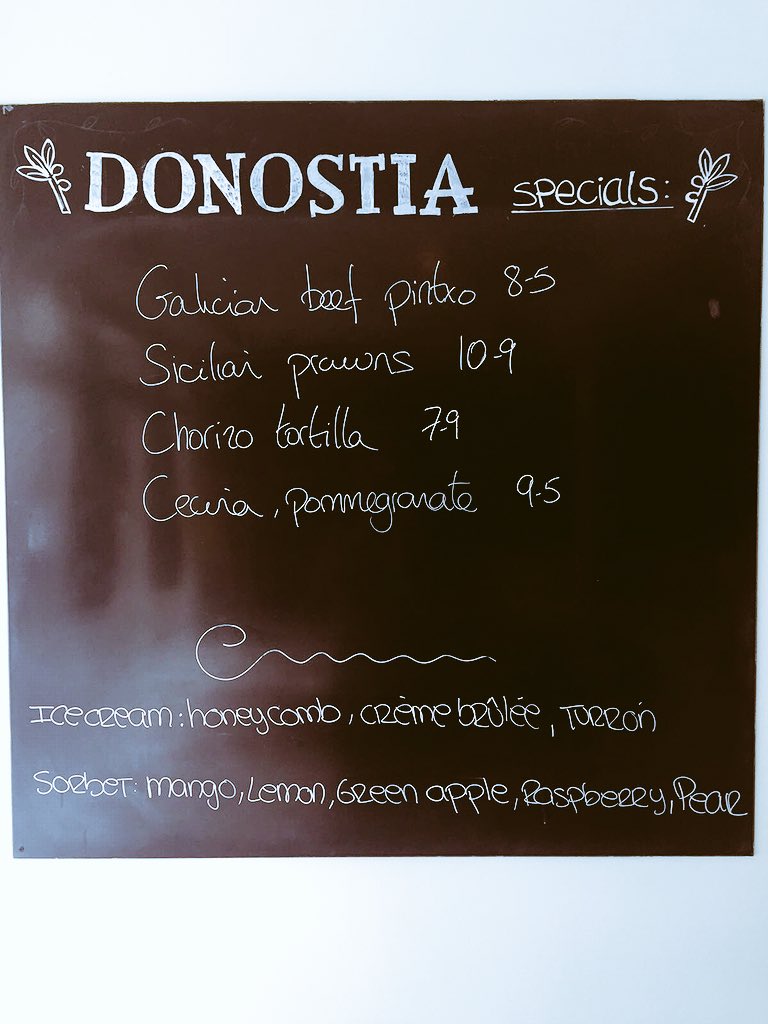 DONOSTIA SPecials:
Galician beef pintxo 8-5
Sicilian prawns 10-9
Chorizo tortilla 7-9
Cecina, pommegranate 9-5
Ice cream: honeycomb, crème brûlée, Turrón
Sorbet: mango, Lemon, Green apple, Raspberry, Pear